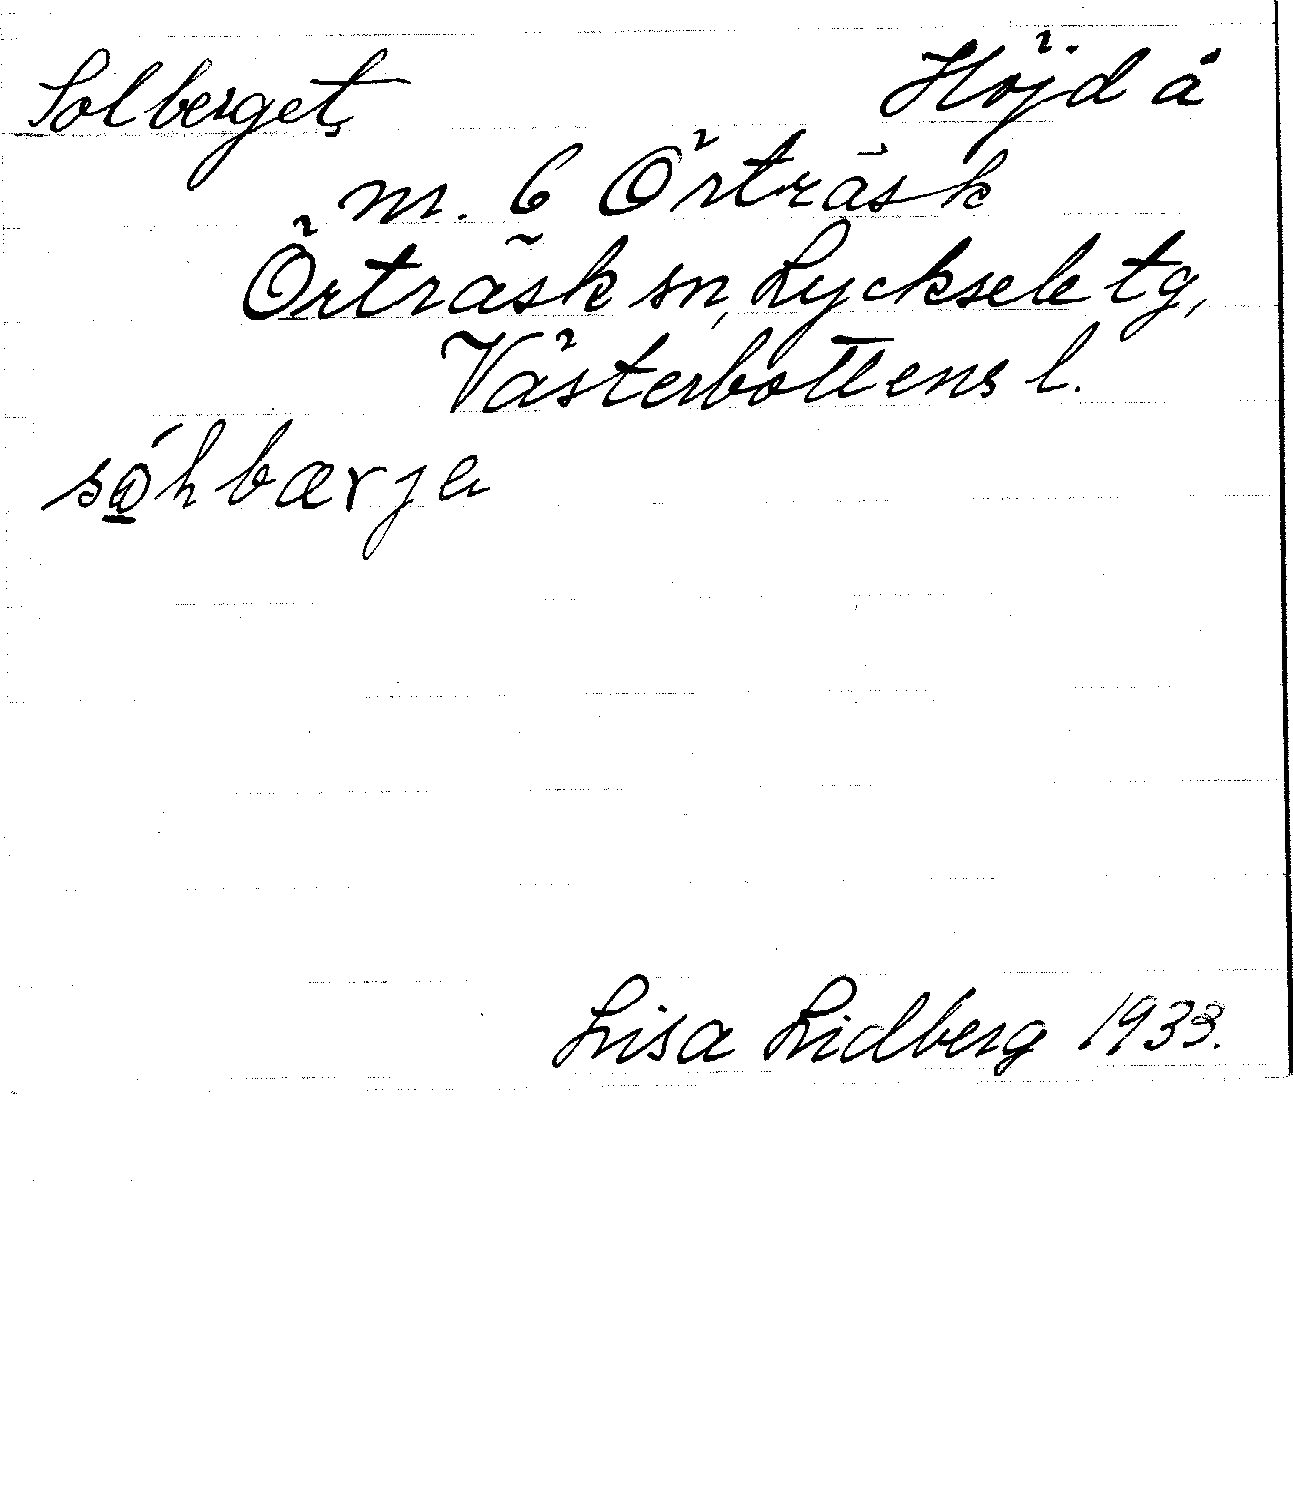 Solberget Höjd å
nr. 6 Örträsk
Örträsk sn, Lycksele tg,
Västerbottens l.
Lisa Lidberg 1933.